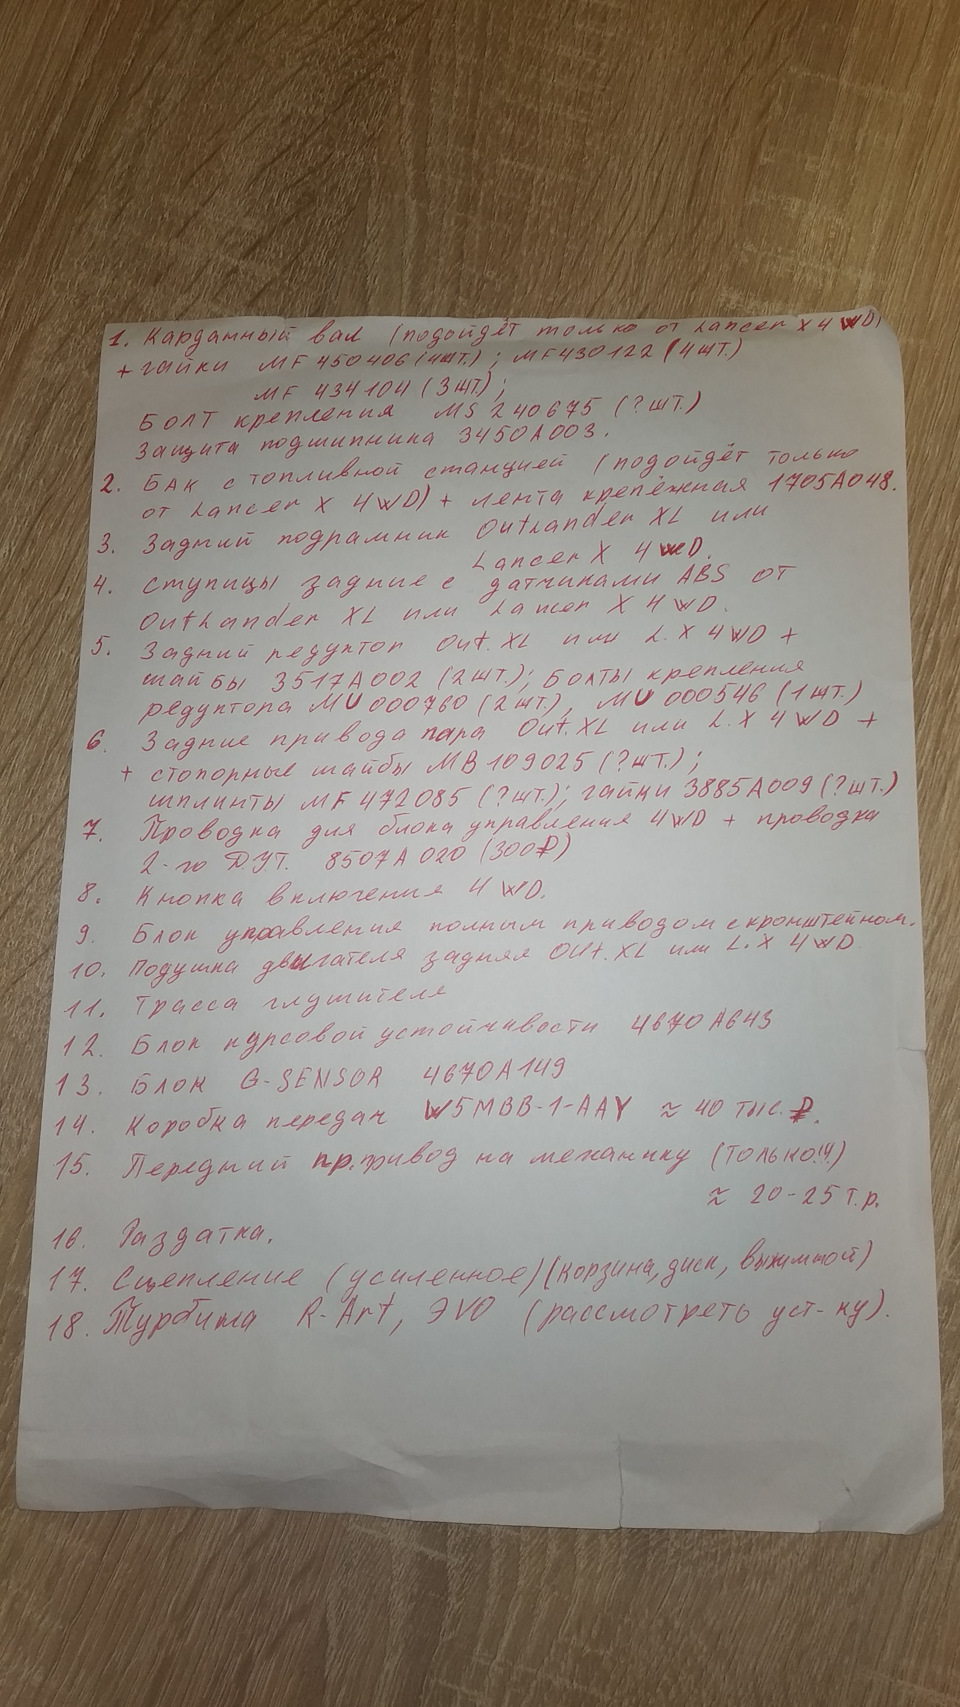 1. Карданный вал (подойдёт только от Lancer X 4WD)
+ гайки MF 450406 (4шт.); MF430122 (4шт.)
MF 434104 (3шт);
Болт крепления MS 240675 (?шт.)
Защита подшипника 3450A003.
2. Бак с топливной станцией (подойдёт только
от Lancer X 4WD) + лента крепёжная 1705A048.
3. Задний подрамник OutLander XL или
Lancer X 4WD.
4. Ступицы задние с датчиками ABS от
OutLander XL или Lancer X 4WD.
5. Задний редуктор Out. XL или L.X 4WD +
шайбы 3517A002 (2шт.); Болты крепления
редуктора MU000760 (2шт.), MU 000546 (1шт.)
6. Задние привода пара Out. XL или L.X 4WD +
+ стопорные шайбы MB109025 (?шт.);
шплинты MF472085 (?шт.); гайки 3885A009 (?шт.)
7. Проводка для блока управления 4WD + проводка
2-го ДУТ. 8507A020 (300₽)
8. Кнопка включения 4WD.
9. Блок управления полным приводом с кронштейном.
10. Подушка двигателя задняя Out. XL или L.X 4WD
11. Трасса глушителя
12. Блок курсовой устойчивости 4670A643
13. Блок G-SENSOR 4670A149
14. Коробка передач W5MBB-1-AAY ≈ 40 тыс. ₽.
15. Передний пр. привод на механику (только!!!)
≈ 20-25 т.р.
16. Раздатка.
17. Сцепление (усиленное) (корзина, диск, выжимной)
18. Турбина R-Art, ЭVO (рассмотреть уст-ку).